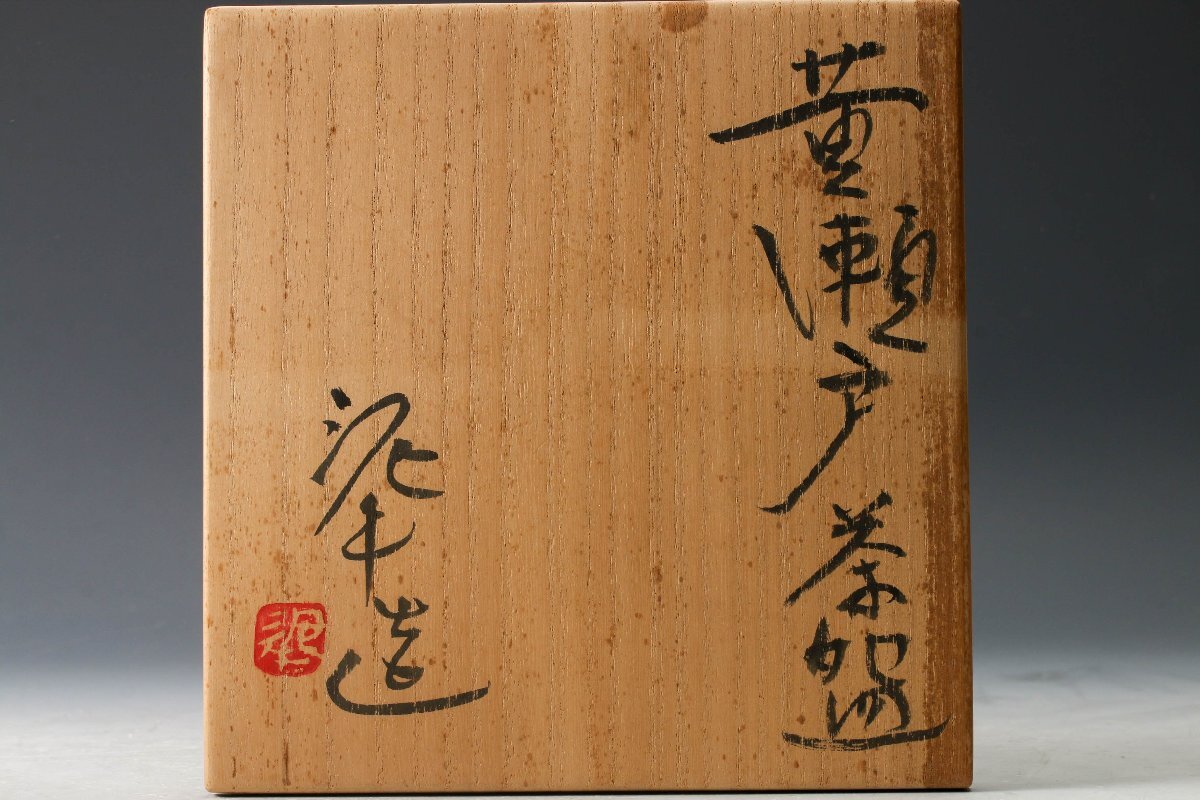 黄瀬戸茶盌
泥牛造